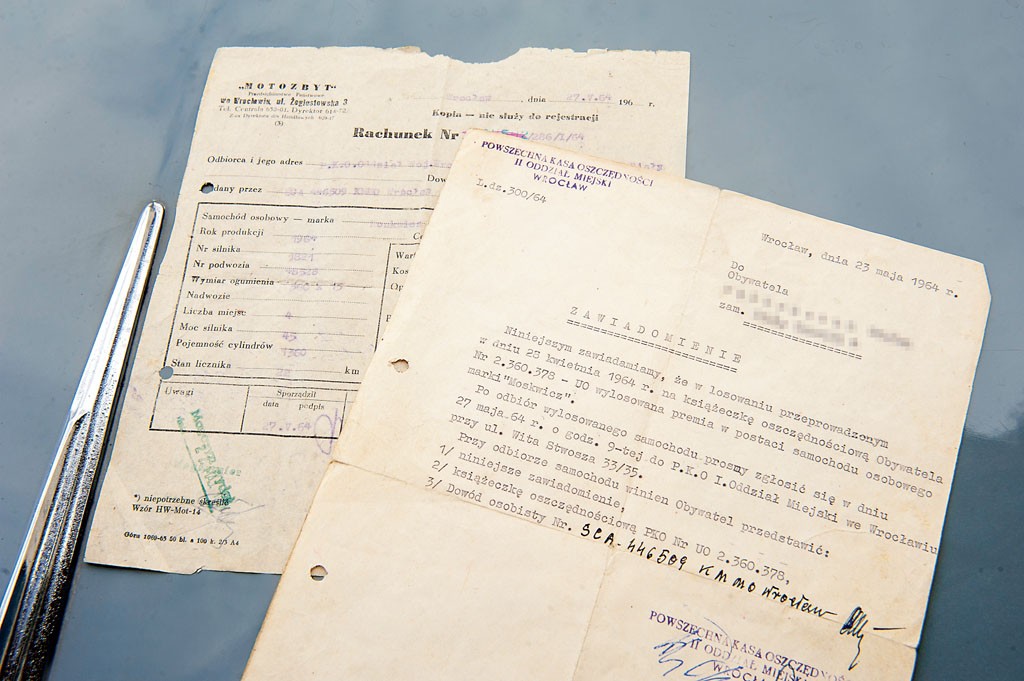 „MOTOZBYT"
Przedsiębiorstwo Państwowe
we Wrocławiu, ul. Żegiestowska 3
Wrocław, dnia 27.V.64 196 r.
Kopia — nie służy do rejestracji
Rachunek Nr
Odbiorca i jego adres P.K.O.Oddział
Dow
dany przez
Samochód osobowy — marka
Rok produkcji 1964
Nr silnika
Nr podwozia
Wymiar ogumienia
Nadwozie
Liczba miejsc 4
Moc silnika 45
Pojemność cylindrów 1360
Stan licznika km
Uwagi
Sporządził
data podpis
27.V.64
*) niepotrzebne skreślić
Wzór HW-Mot-14
POWSZECHNA KASA OSZCZĘDNOŚCI
II ODDZIAŁ MIEJSKI
WROCŁAW
L.dz.300/64
Wrocław, dnia 23 maja 1964 r.
Do
Obywatela
zam.
ZAWIADOMIENIE
Niniejszym zawiadamiamy, że w losowaniu przeprowadzonym
w dniu 23 kwietnia 1964 r. na książeczkę oszczędnościową Obywatela
Nr 2.360.378 - UO wylosowana premia w postaci samochodu osobowego
marki"Moskwicz".
Po odbiór wylosowanego samochodu prosmy zgłosić się w dniu
27 maja 64 r. o godz. 9-tej do P.K.O I.Oddział Miejski we Wrocławiu
przy ul. Wita Stwosza 33/35.
Przy odbiorze samochodu winien Obywatel przedstawić:
1/ niniejsze zawiadomienie,
2/ książeczkę oszczędnościową PKO Nr UO 2.360.378,
3/ Dowód osobisty Nr. SCA-446509 KMMO Wrocław
POWSZECHNA KASA OSZCZĘDNOŚCI
II ODDZIAŁ MIEJSKI